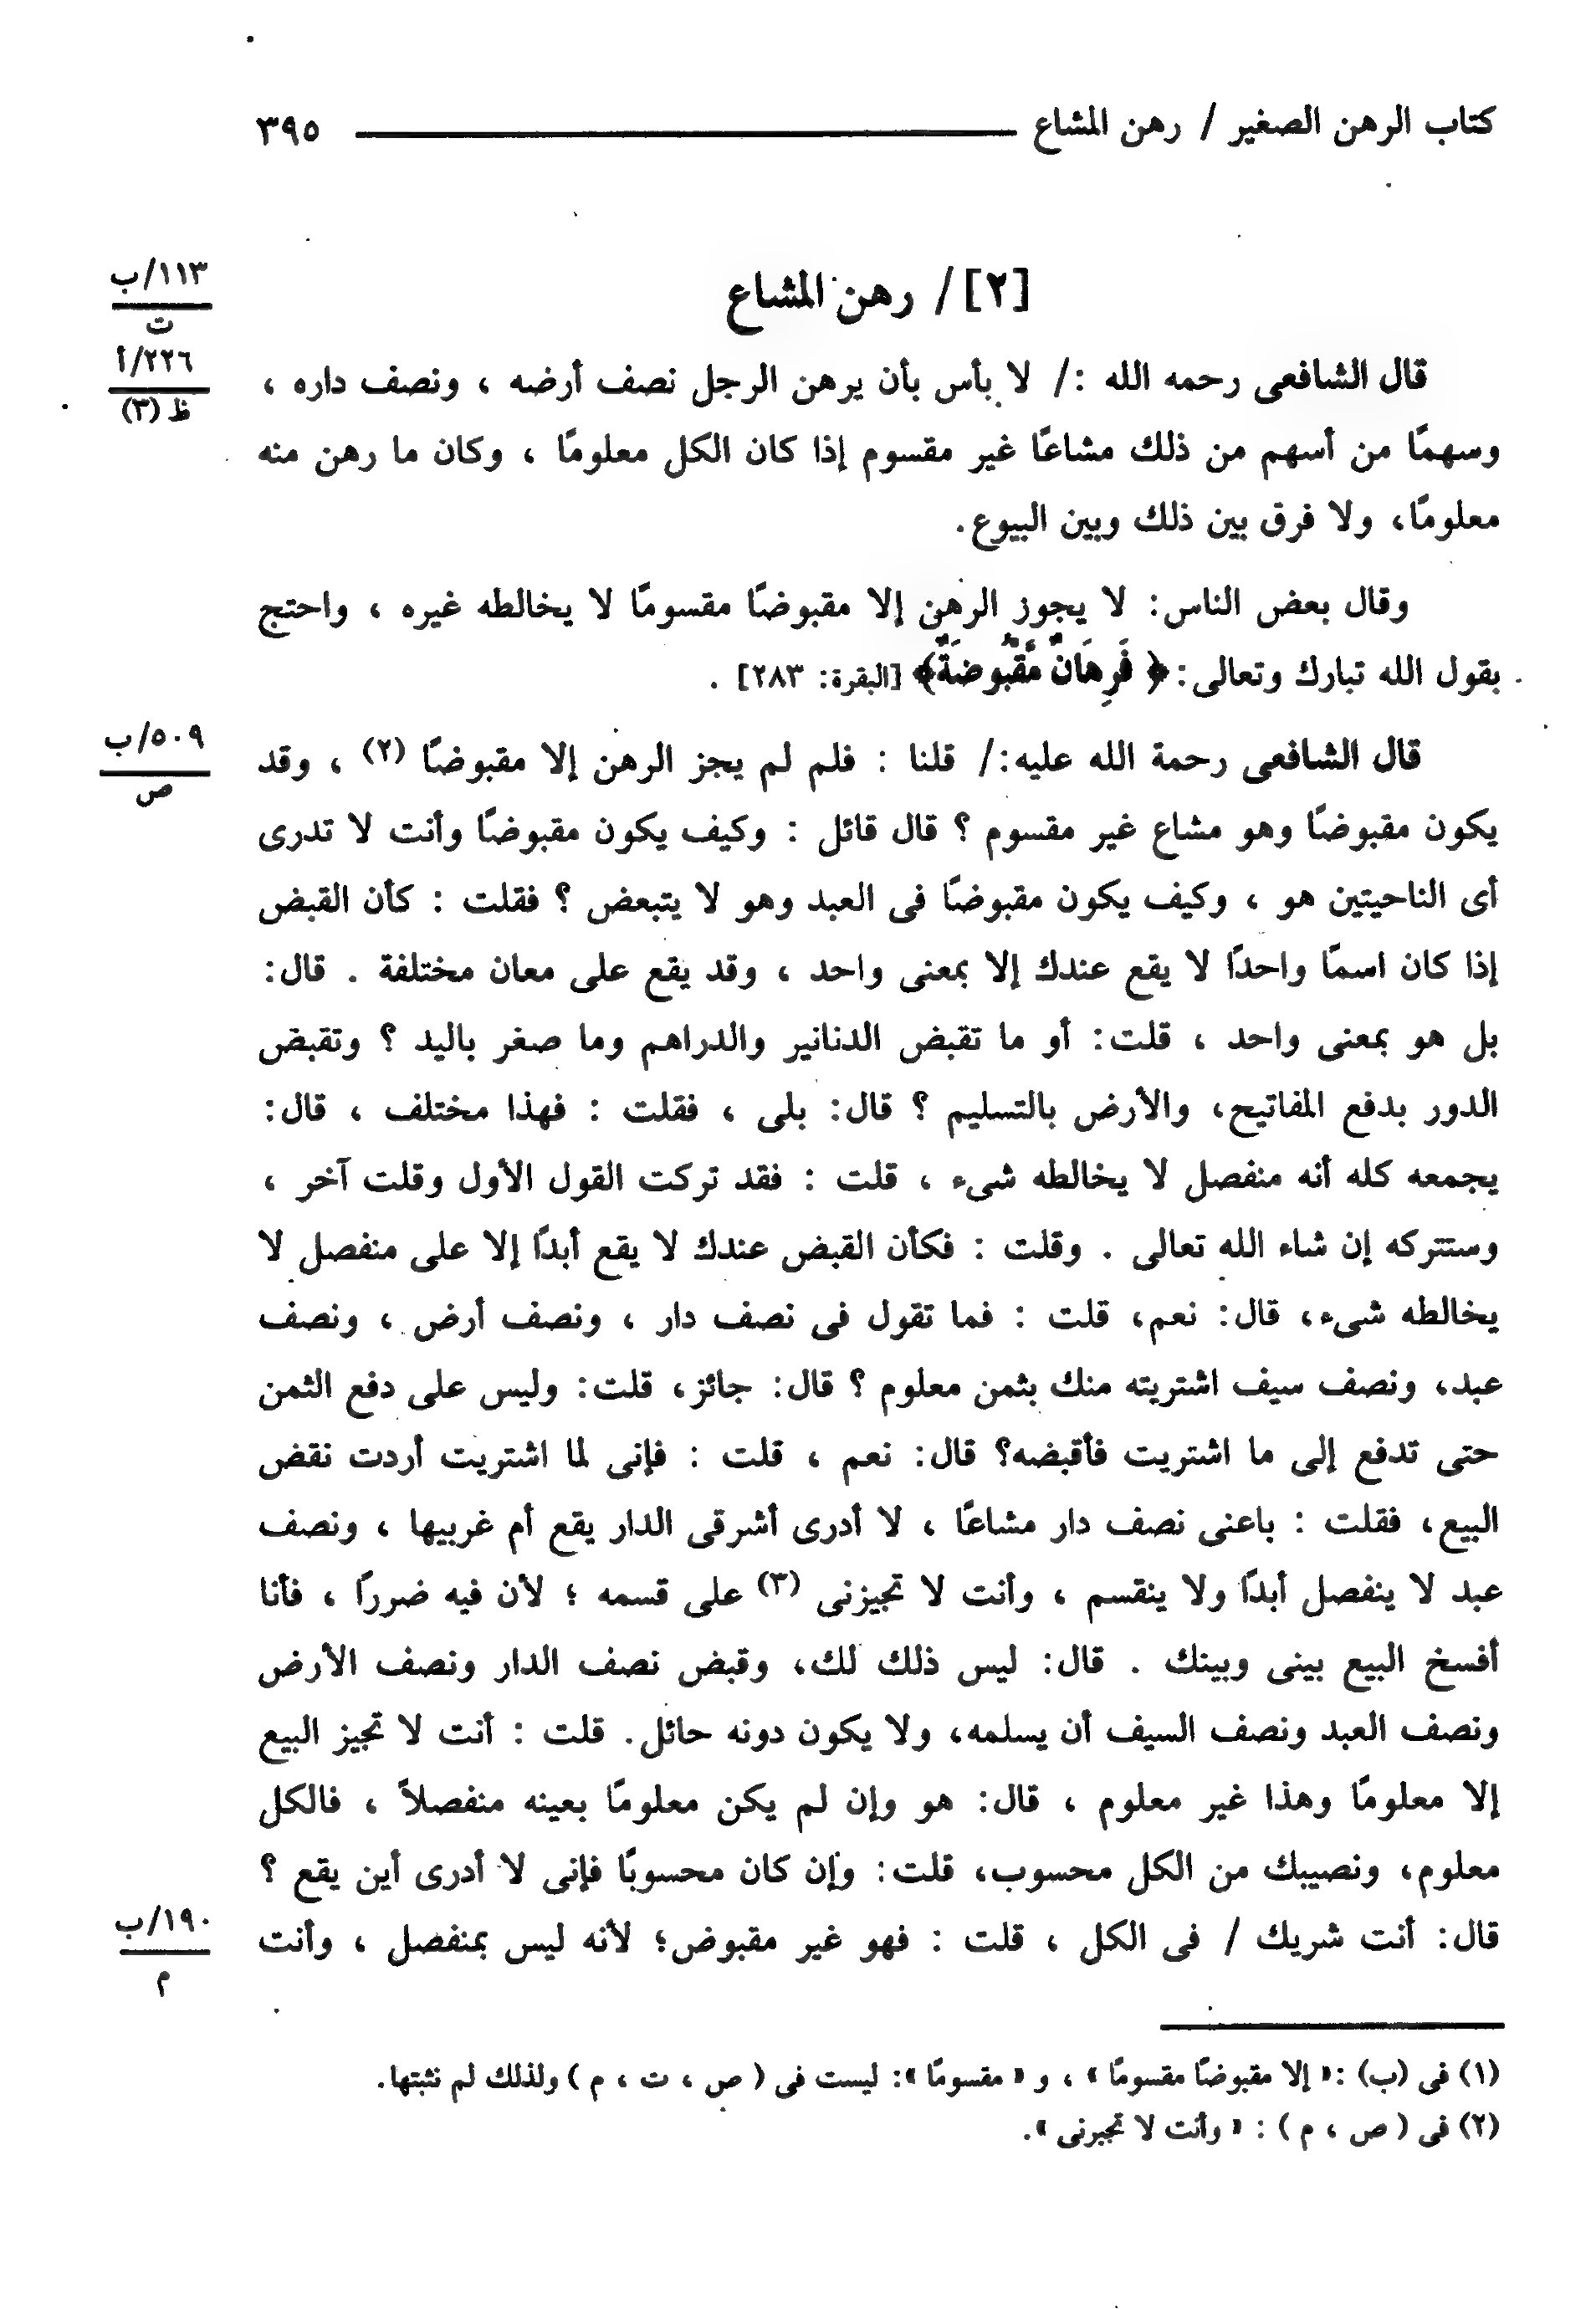 كتاب الرهن الصغير / رهن المشاع ٣٩٥
[٢] / رهن المشاع
١١٣/ب
ت
٢٢٦/أ
ظ (٣)
قال الشافعى رحمه الله :/ لا بأس بأن يرهن الرجل نصف أرضه ، ونصف داره ،
وسهمًا من أسهم من ذلك مشاعًا غير مقسوم إذا كان الكل معلومًا ، وكان ما رهن منه
معلومًا، ولا فرق بين ذلك وبين البيوع.
وقال بعض الناس: لا يجوز الرهن إلا مقبوضًا مقسومًا لا يخالطه غيره ، واحتج
بقول الله تبارك وتعالى: ﴿ فَرِهَانٌ مَّقْبُوضَةٌ﴾ [البقرة: ٢٨٣] .
قال الشافعى رحمة الله عليه:/ قلنا : فلم لم يجز الرهن إلا مقبوضًا (٢) ، وقد
٥٠٩/ب
ص
يكون مقبوضًا وهو مشاع غير مقسوم ؟ قال قائل : وكيف يكون مقبوضًا وأنت لا تدرى
أى الناحيتين هو ، وكيف يكون مقبوضًا فى العبد وهو لا يتبعض ؟ فقلت : كأن القبض
إذا كان اسمًا واحدًا لا يقع عندك إلا بمعنى واحد ، وقد يقع على معان مختلفة . قال:
بل هو بمعنى واحد ، قلت: أو ما تقبض الدنانير والدراهم وما صغر باليد ؟ وتقبض
الدور بدفع المفاتيح، والأرض بالتسليم ؟ قال: بلى ، فقلت : فهذا مختلف ، قال:
يجمعه كله أنه منفصل لا يخالطه شىء ، قلت : فقد تركت القول الأول وقلت آخر ،
وستتركه إن شاء الله تعالى . وقلت : فكأن القبض عندك لا يقع أبدًا إلا على منفصل لا
يخالطه شىء، قال: نعم، قلت : فما تقول فى نصف دار ، ونصف أرض ، ونصف
عبد، ونصف سيف اشتريته منك بثمن معلوم ؟ قال: جائز، قلت: وليس على دفع الثمن
حتى تدفع إلى ما اشتريت فأقبضه؟ قال: نعم ، قلت : فإنى لما اشتريت أردت نقض
البيع، فقلت : باعنى نصف دار مشاعًا ، لا أدرى أشرقى الدار يقع أم غربيها ، ونصف
عبد لا ينفصل أبدًا ولا ينقسم ، وأنت لا تجيزنى (٣) على قسمه ؛ لأن فيه ضررًا ، فأنا
أفسخ البيع بينى وبينك . قال: ليس ذلك لك، وقبض نصف الدار ونصف الأرض
ونصف العبد ونصف السيف أن يسلمه، ولا يكون دونه حائل. قلت : أنت لا تجيز البيع
إلا معلومًا وهذا غير معلوم ، قال: هو وإن لم يكن معلومًا بعينه منفصلاً ، فالكل
معلوم، ونصيبك من الكل محسوب، قلت: وإن كان محسوبًا فإنى لا أدرى أين يقع ؟
قال: أنت شريك / فى الكل ، قلت : فهو غير مقبوض؛ لأنه ليس بمنفصل ، وأنت
١٩٠/ب
م
(١) فى (ب) :« إلا مقبوضًا مقسومًا » ، و « مقسومًا »: ليست فى ( ص ، ت ، م ) ولذلك لم نثبتها.
(٢) فى ( ص ، م ) : « وأنت لا تجبرنى ».